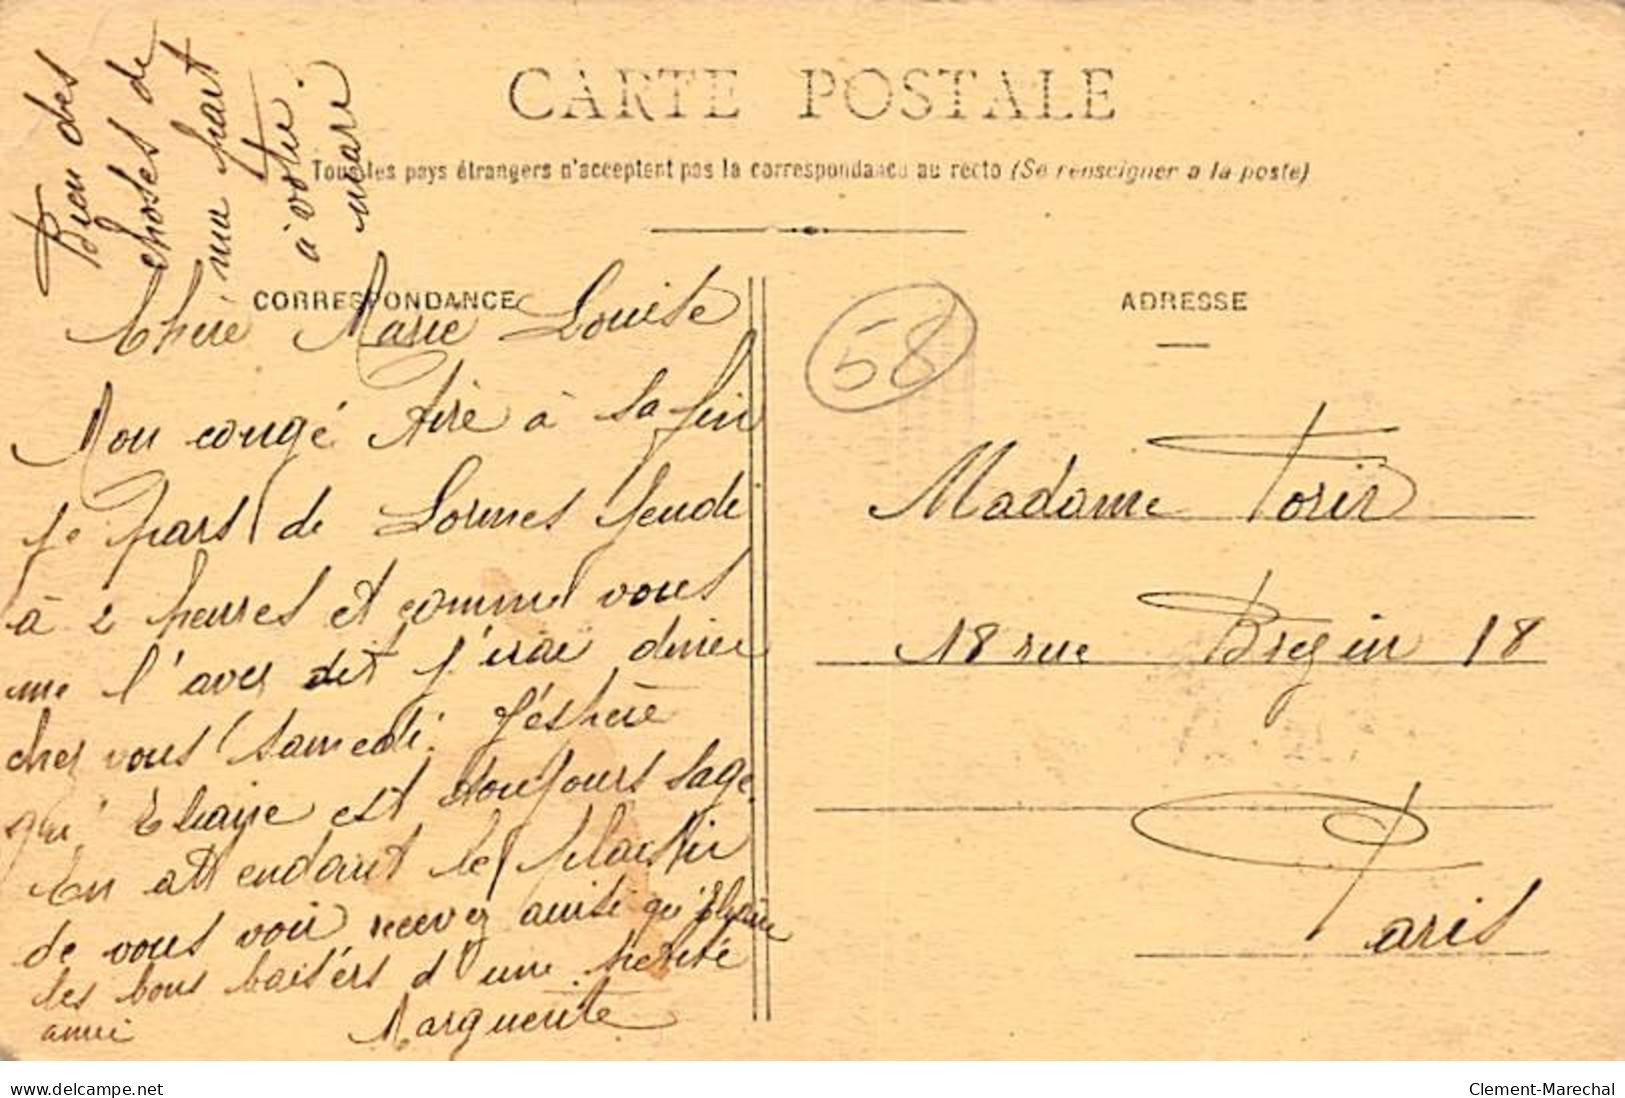 Bien des
choses de
ma part
à votre
mari
CARTE POSTALE
Tous les pays étrangers n'acceptent pas la correspondance au recto (Se renseigner a la poste)
CORRESPONDANCE
Chère Marie Louise
Mon congé tire à sa fin
je pars de Lormes jeudi
à 2 heures et comme vous
me l'avez dit j'irai diner
chez vous samedi. J'éspère
qu' est toujours sage
En attendant le plaisir
de vous voir recevez ainsi qu'
les bons baisérs d'une petite
amie
Marguerite
58
ADRESSE
Madame
18 rue Bregin 18
Paris
www.delcampe.net
Clement-Marechal